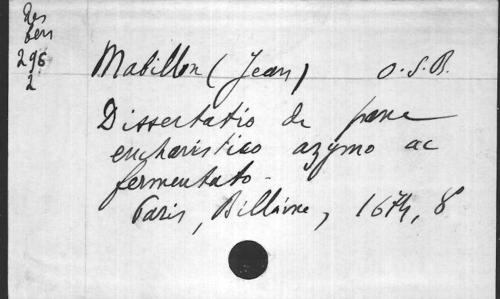 Res
bén
296
2
Mabillon (Jean) O.S.B.
Dissertatio de pane
eucharistico azymo ac
fermentato.
Paris, Billaine, 1674, 8